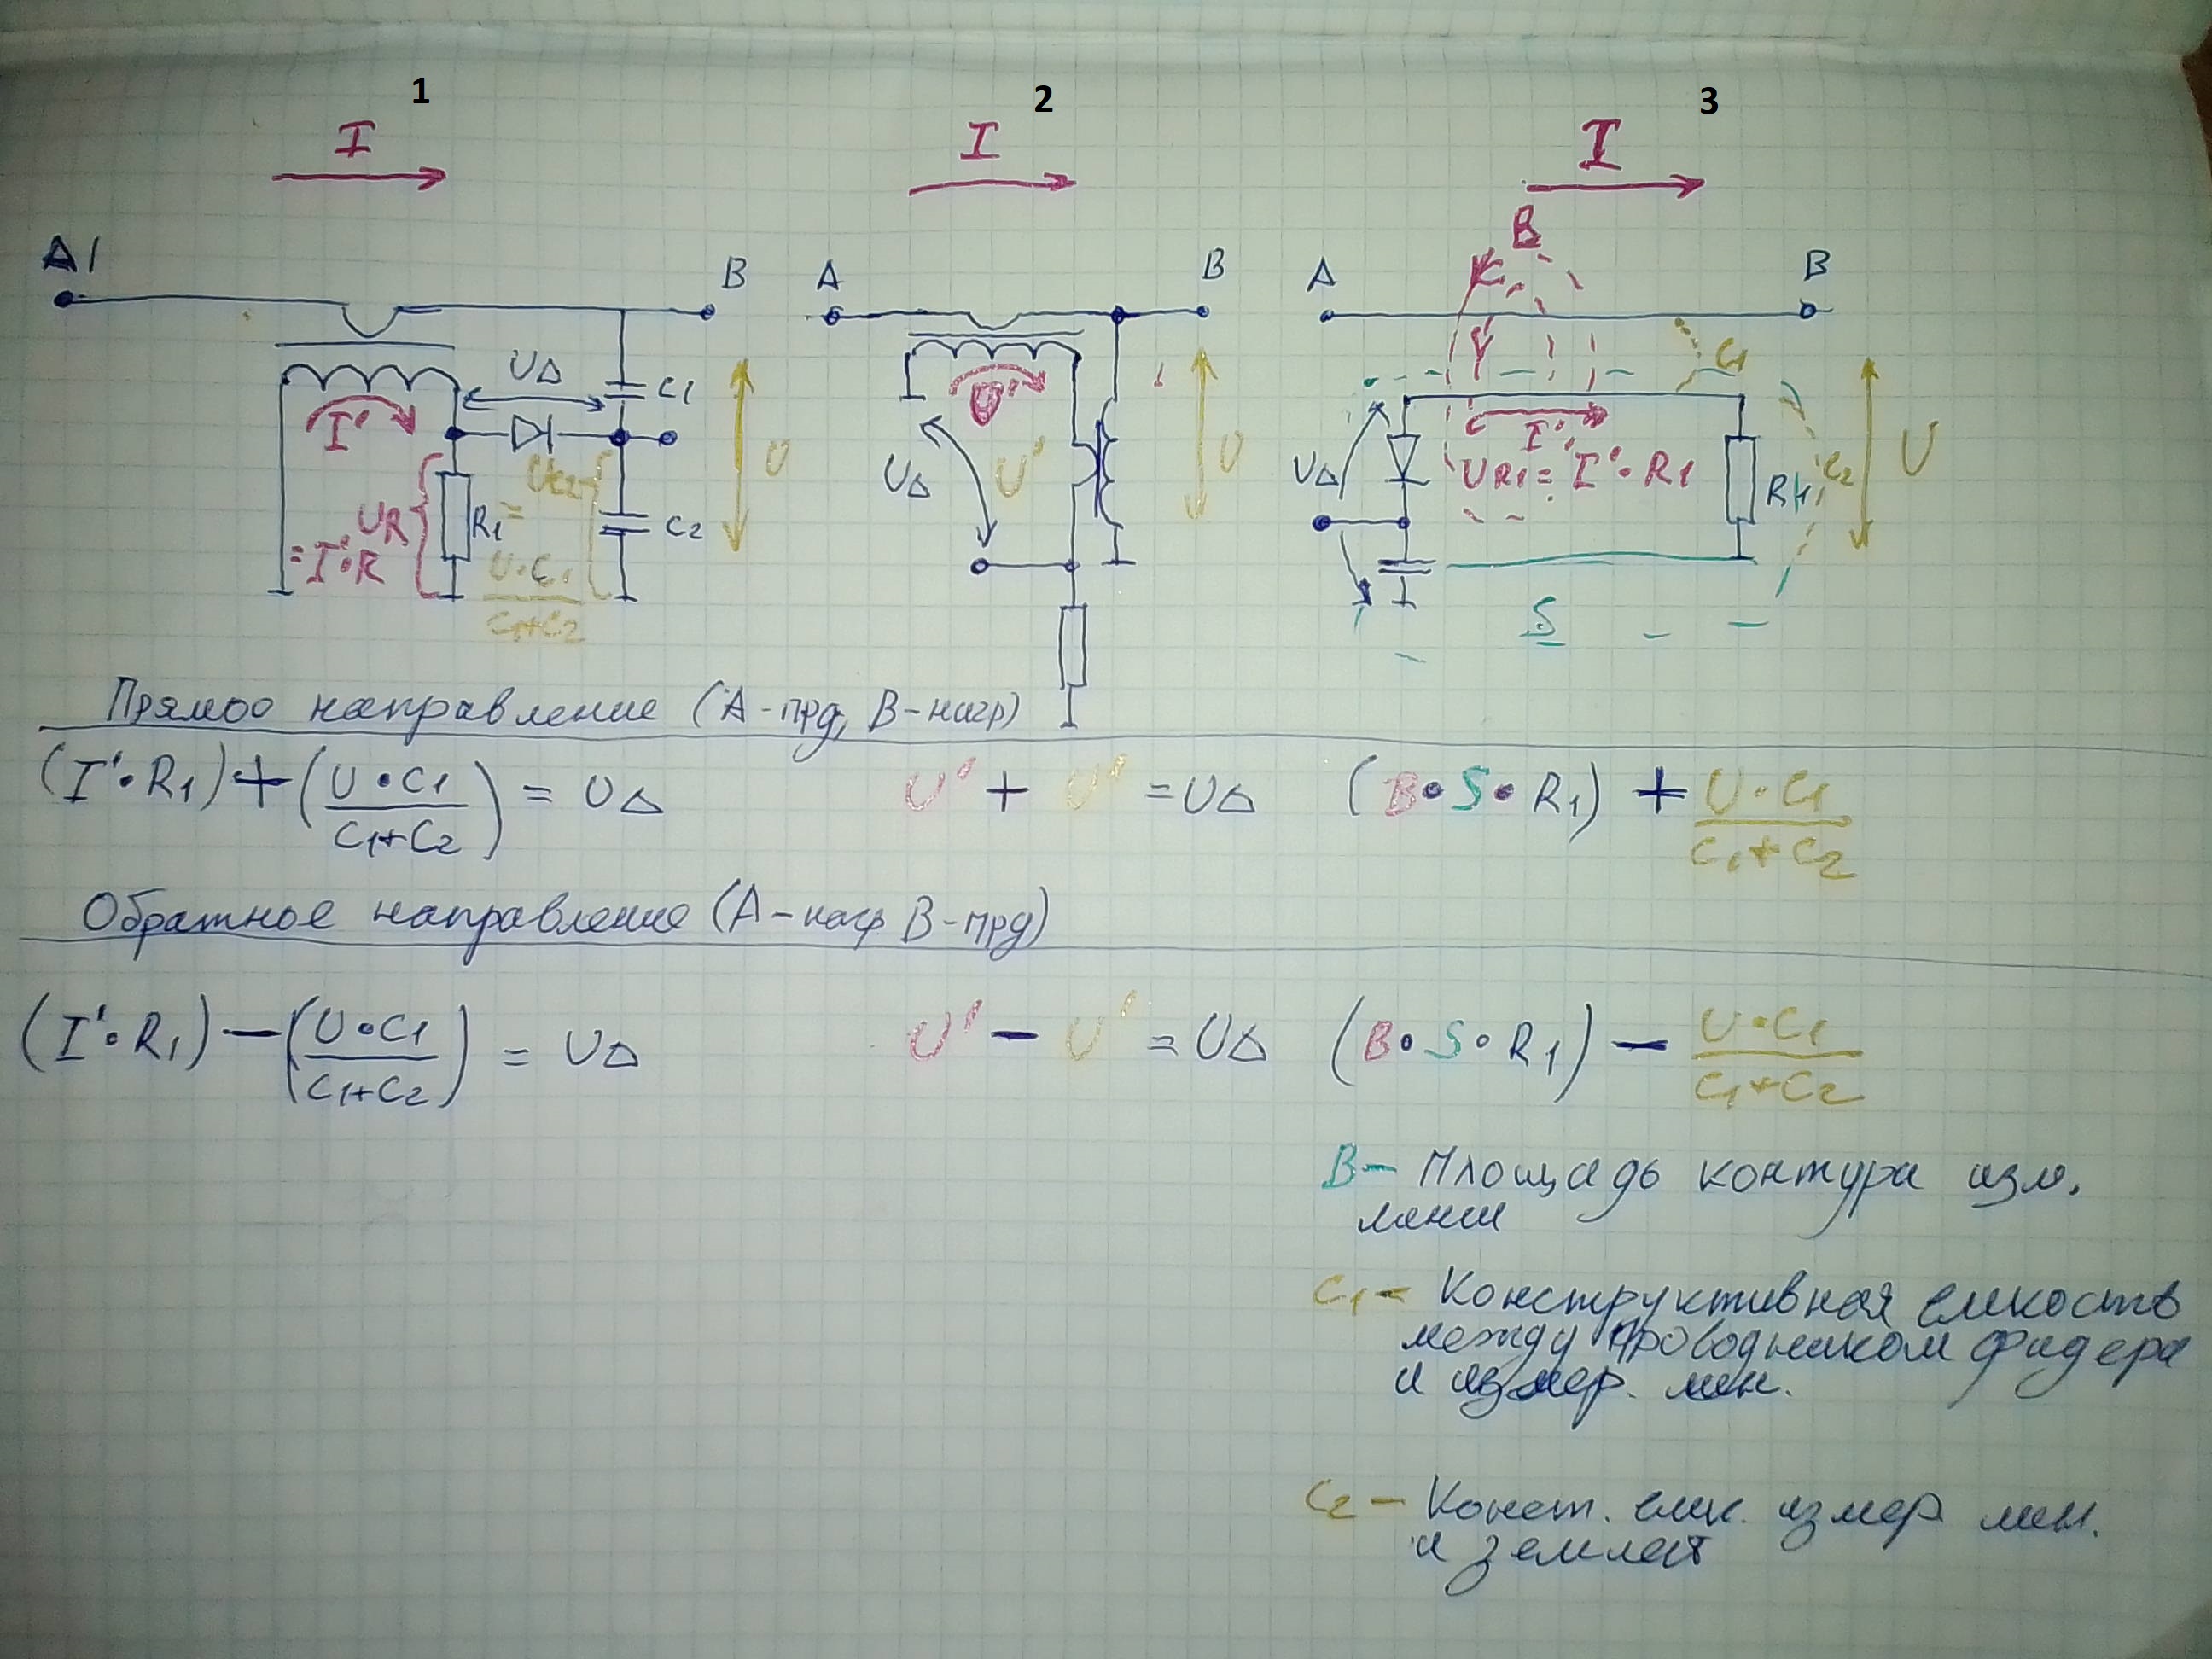 1
2
3
I
I
I
B
A1
B
A
B
A
B
UΔ
C1
I'
U'
C1
I'
U
UΔ
U'
U
UΔ
UR1 = I'·R1
C2
U
UR
= I'·R
R1
=
UC2
U·C1
C1+C2
C2
S
Прямое направление (А-прд, В-нагр)
(I'·R1)+(U·C1 / C1+C2) = UΔ
U' + U' = UΔ
(B·S·R1) + U·C1 / C1+C2
Обратное направление (А-нагр В-прд)
(I'·R1)-(U·C1 / C1+C2) = UΔ
U' - U' = UΔ
(B·S·R1) - U·C1 / C1+C2
B- Площадь контура изм.
линии
C1- Конструктивная емкость
между проводником фидера
и измер. лин.
C2- Конст. емк. измер лин.
и землей